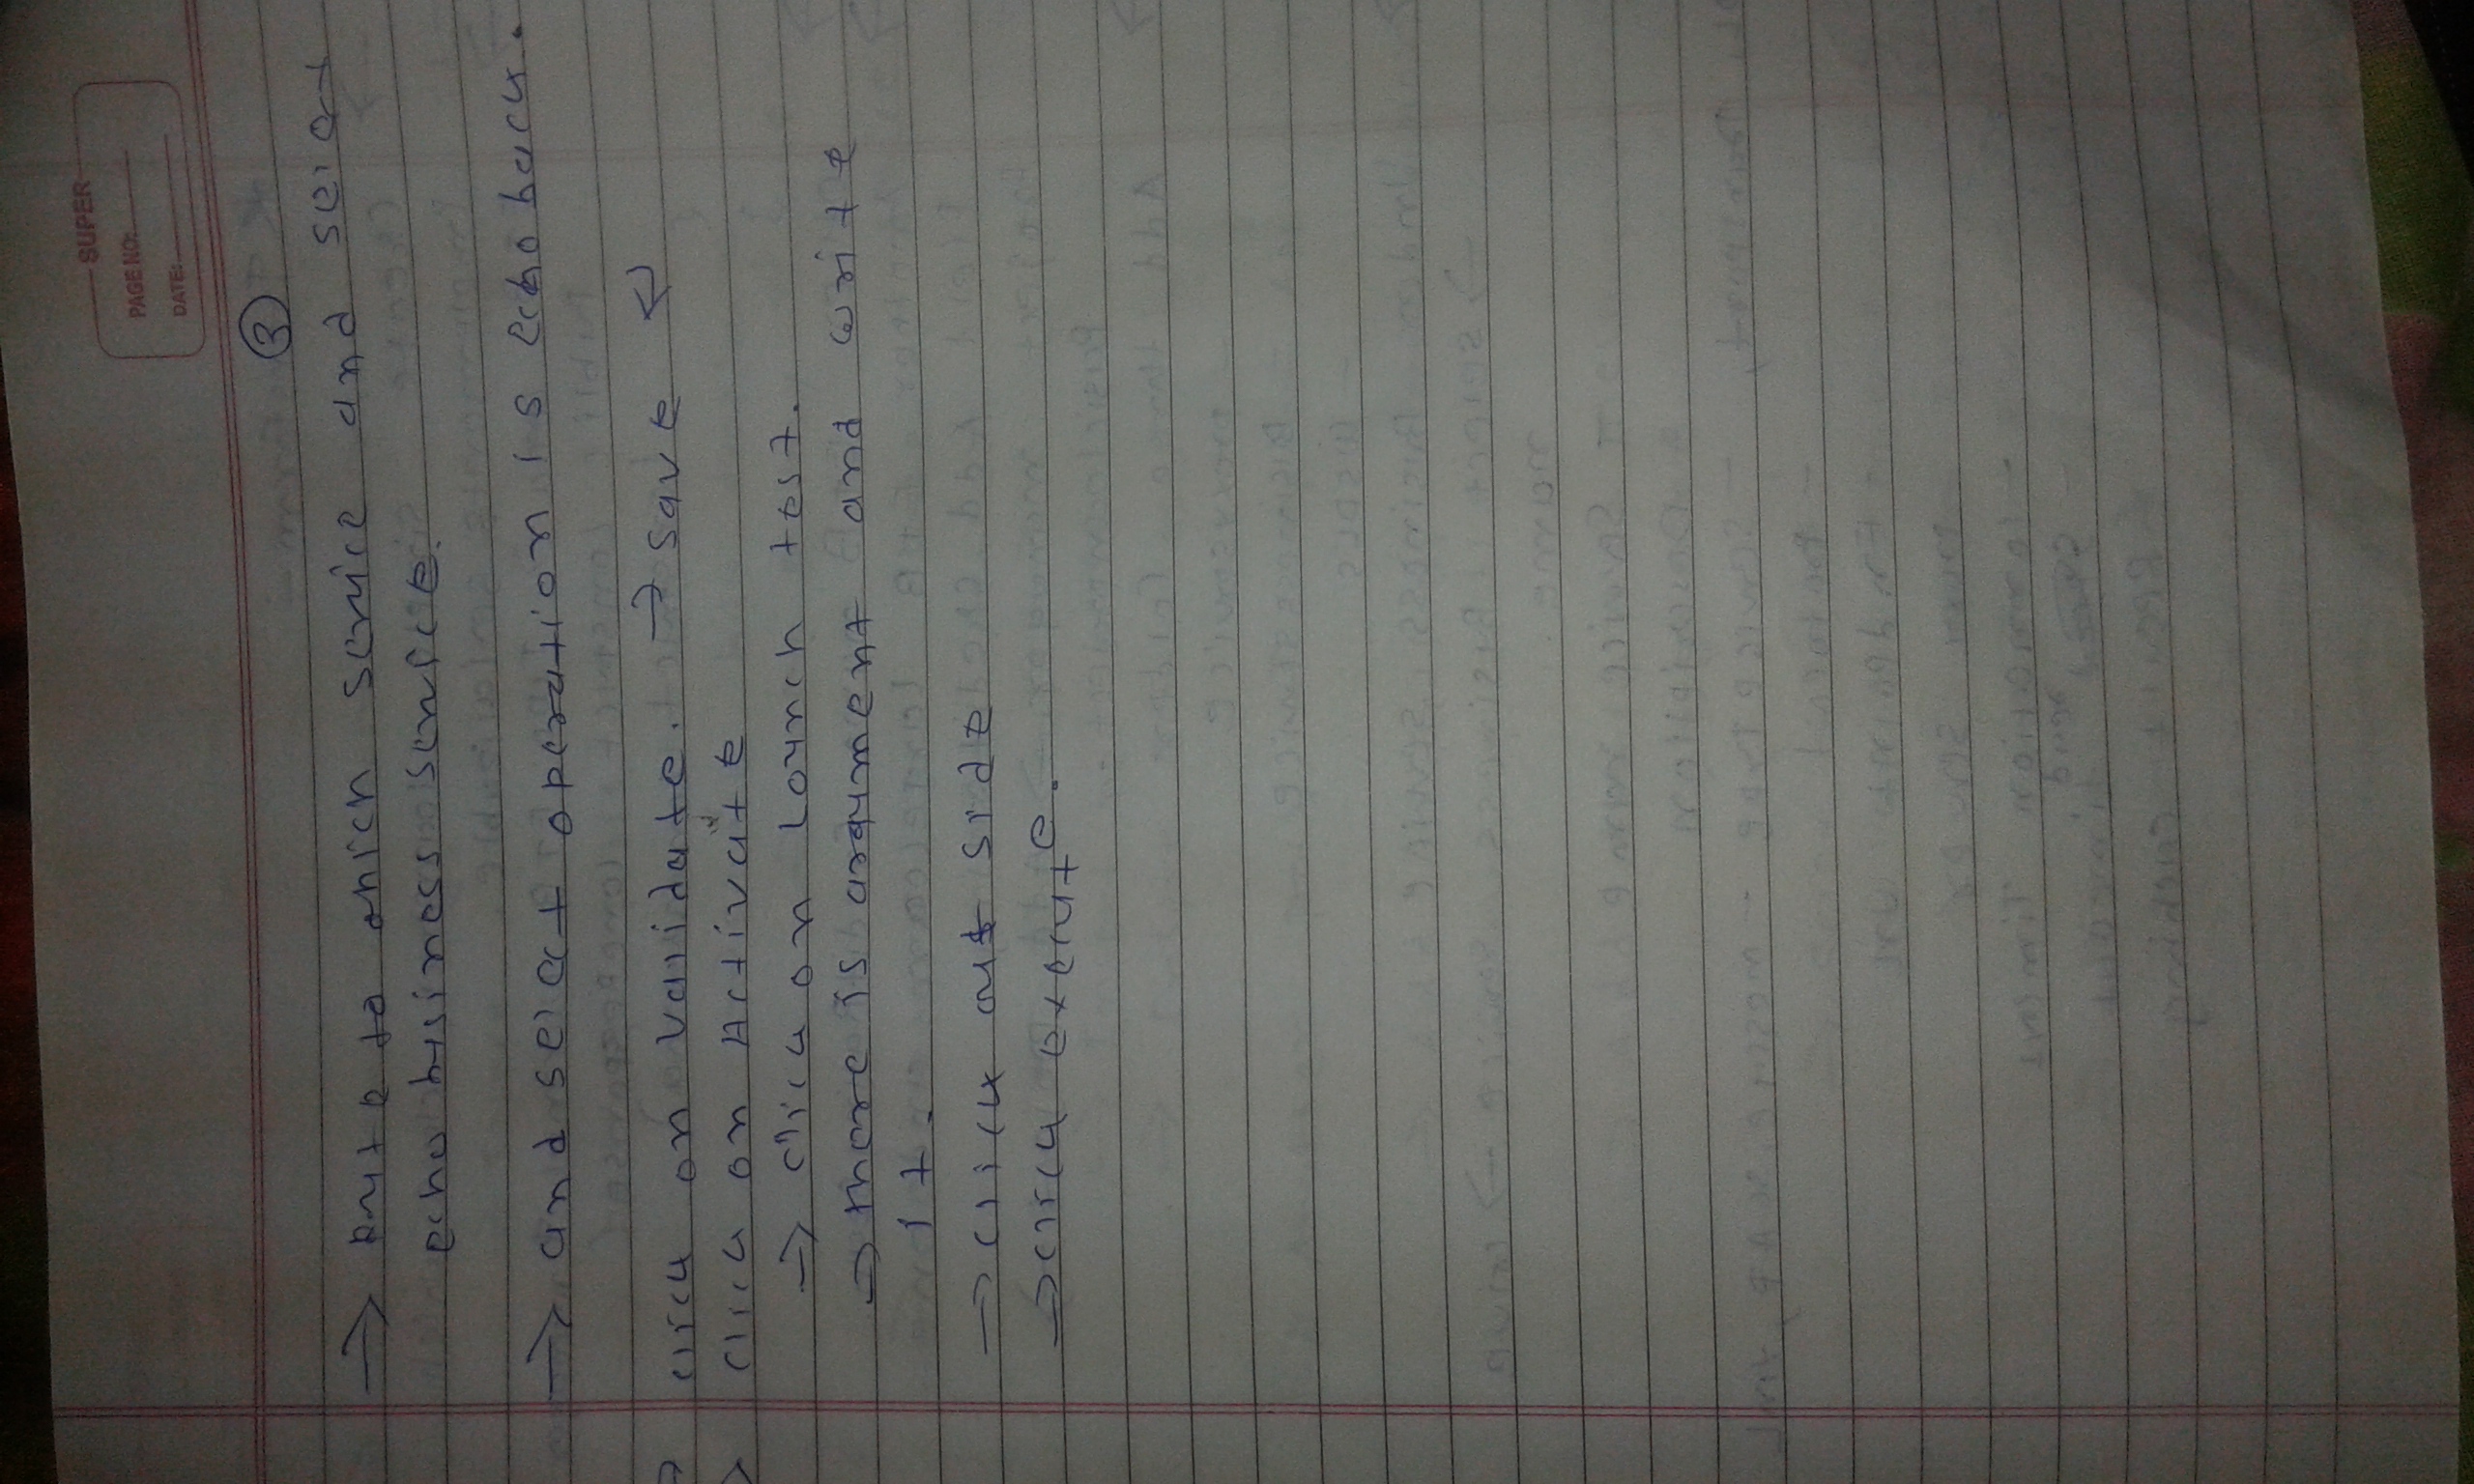 SUPER
PAGE NO:
DATE:
③
→ rute to which service and select
echo business service.
→ and select operation is echo back.
→ click on validate. → save ↵
→ click on Activate
→ click on Lounch test.
→ there is argument and write
it.
→ click out side
→ click execute.